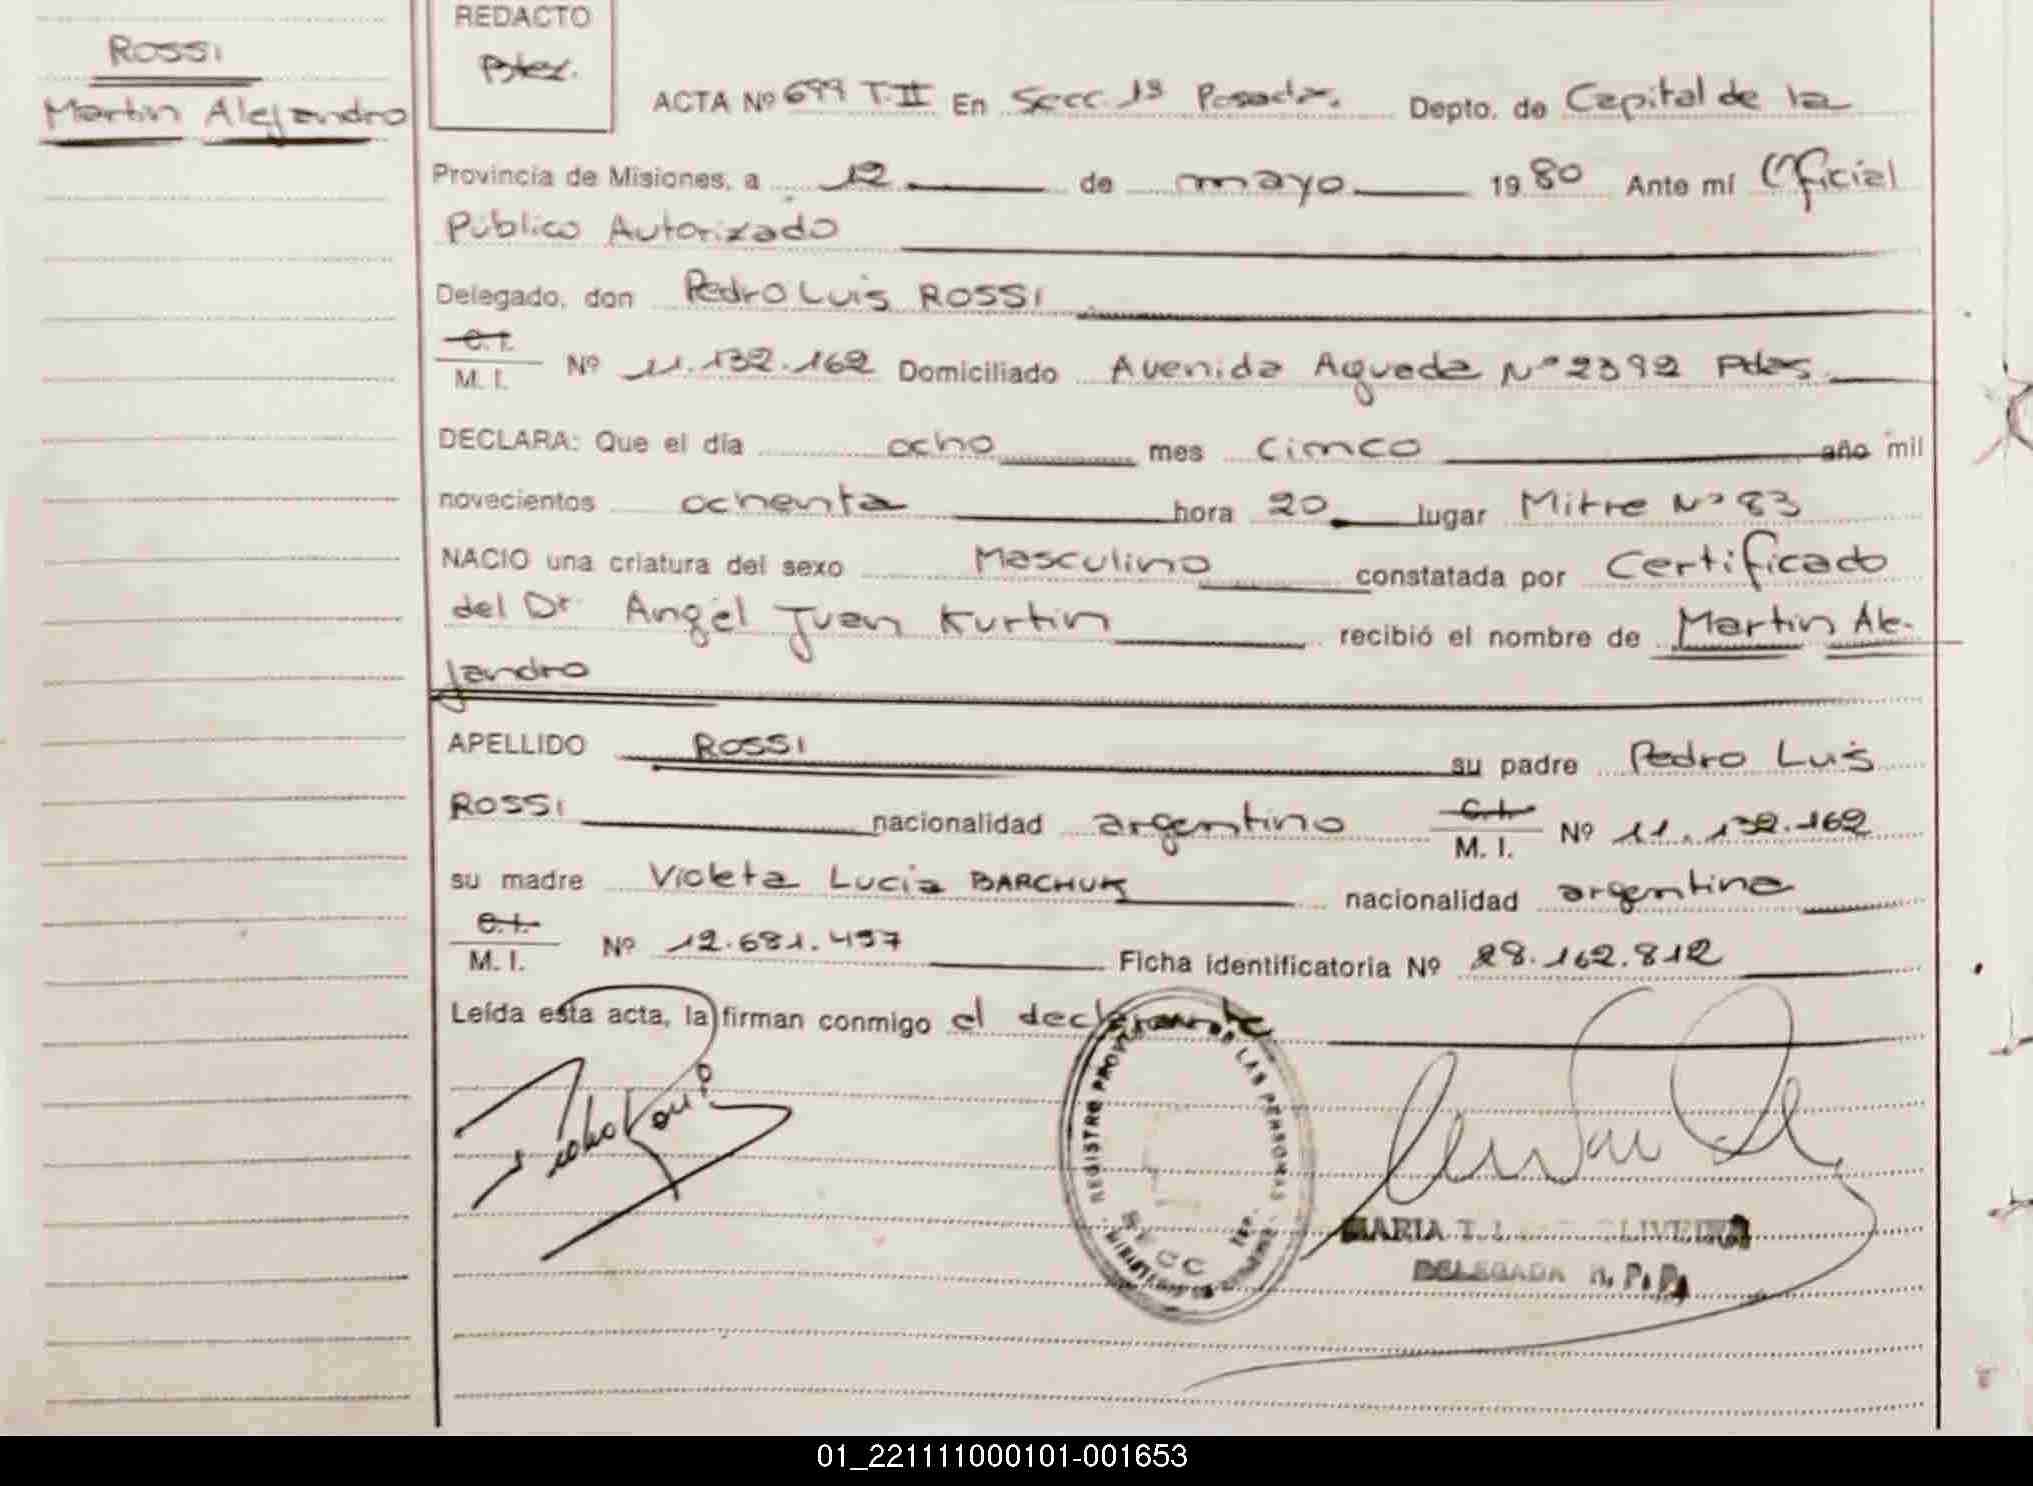 REDACTO
ROSSI
Martin Alejandro
ACTA Nº 699 T.II En Secc. 1ª Posadas. Depto. de Capital de la
Provincia de Misiones, a 12 de mayo 1980 Ante mí Oficial
Público Autorizado
Delegado, don Pedro Luis ROSSI
C.I.
M. I. Nº 11.132.162 Domiciliado Avenida Aguado Nº 2392 Pdas
DECLARA: Que el día ocho mes Cinco año mil
novecientos ochenta hora 20 lugar Mitre Nº 83
NACIO una criatura del sexo Masculino constatada por Certificado
del Dr. Angel Juan Kurtin recibió el nombre de Martin Ale-
jandro
APELLIDO ROSSI su padre Pedro Luis
ROSSI nacionalidad argentino C.I. M. I. Nº 11.132.162
su madre Violeta Lucia BARCHUK nacionalidad argentina
C.I.
M. I. Nº 12.681.497 Ficha identificatoria Nº 28.162.812
Leída esta acta, la firman conmigo el declarante
REGISTRO LAS PERSONAS
SECC
MARIA T. OLIVEIRA
DELEGADA R. P. P.
01_221111000101-001653